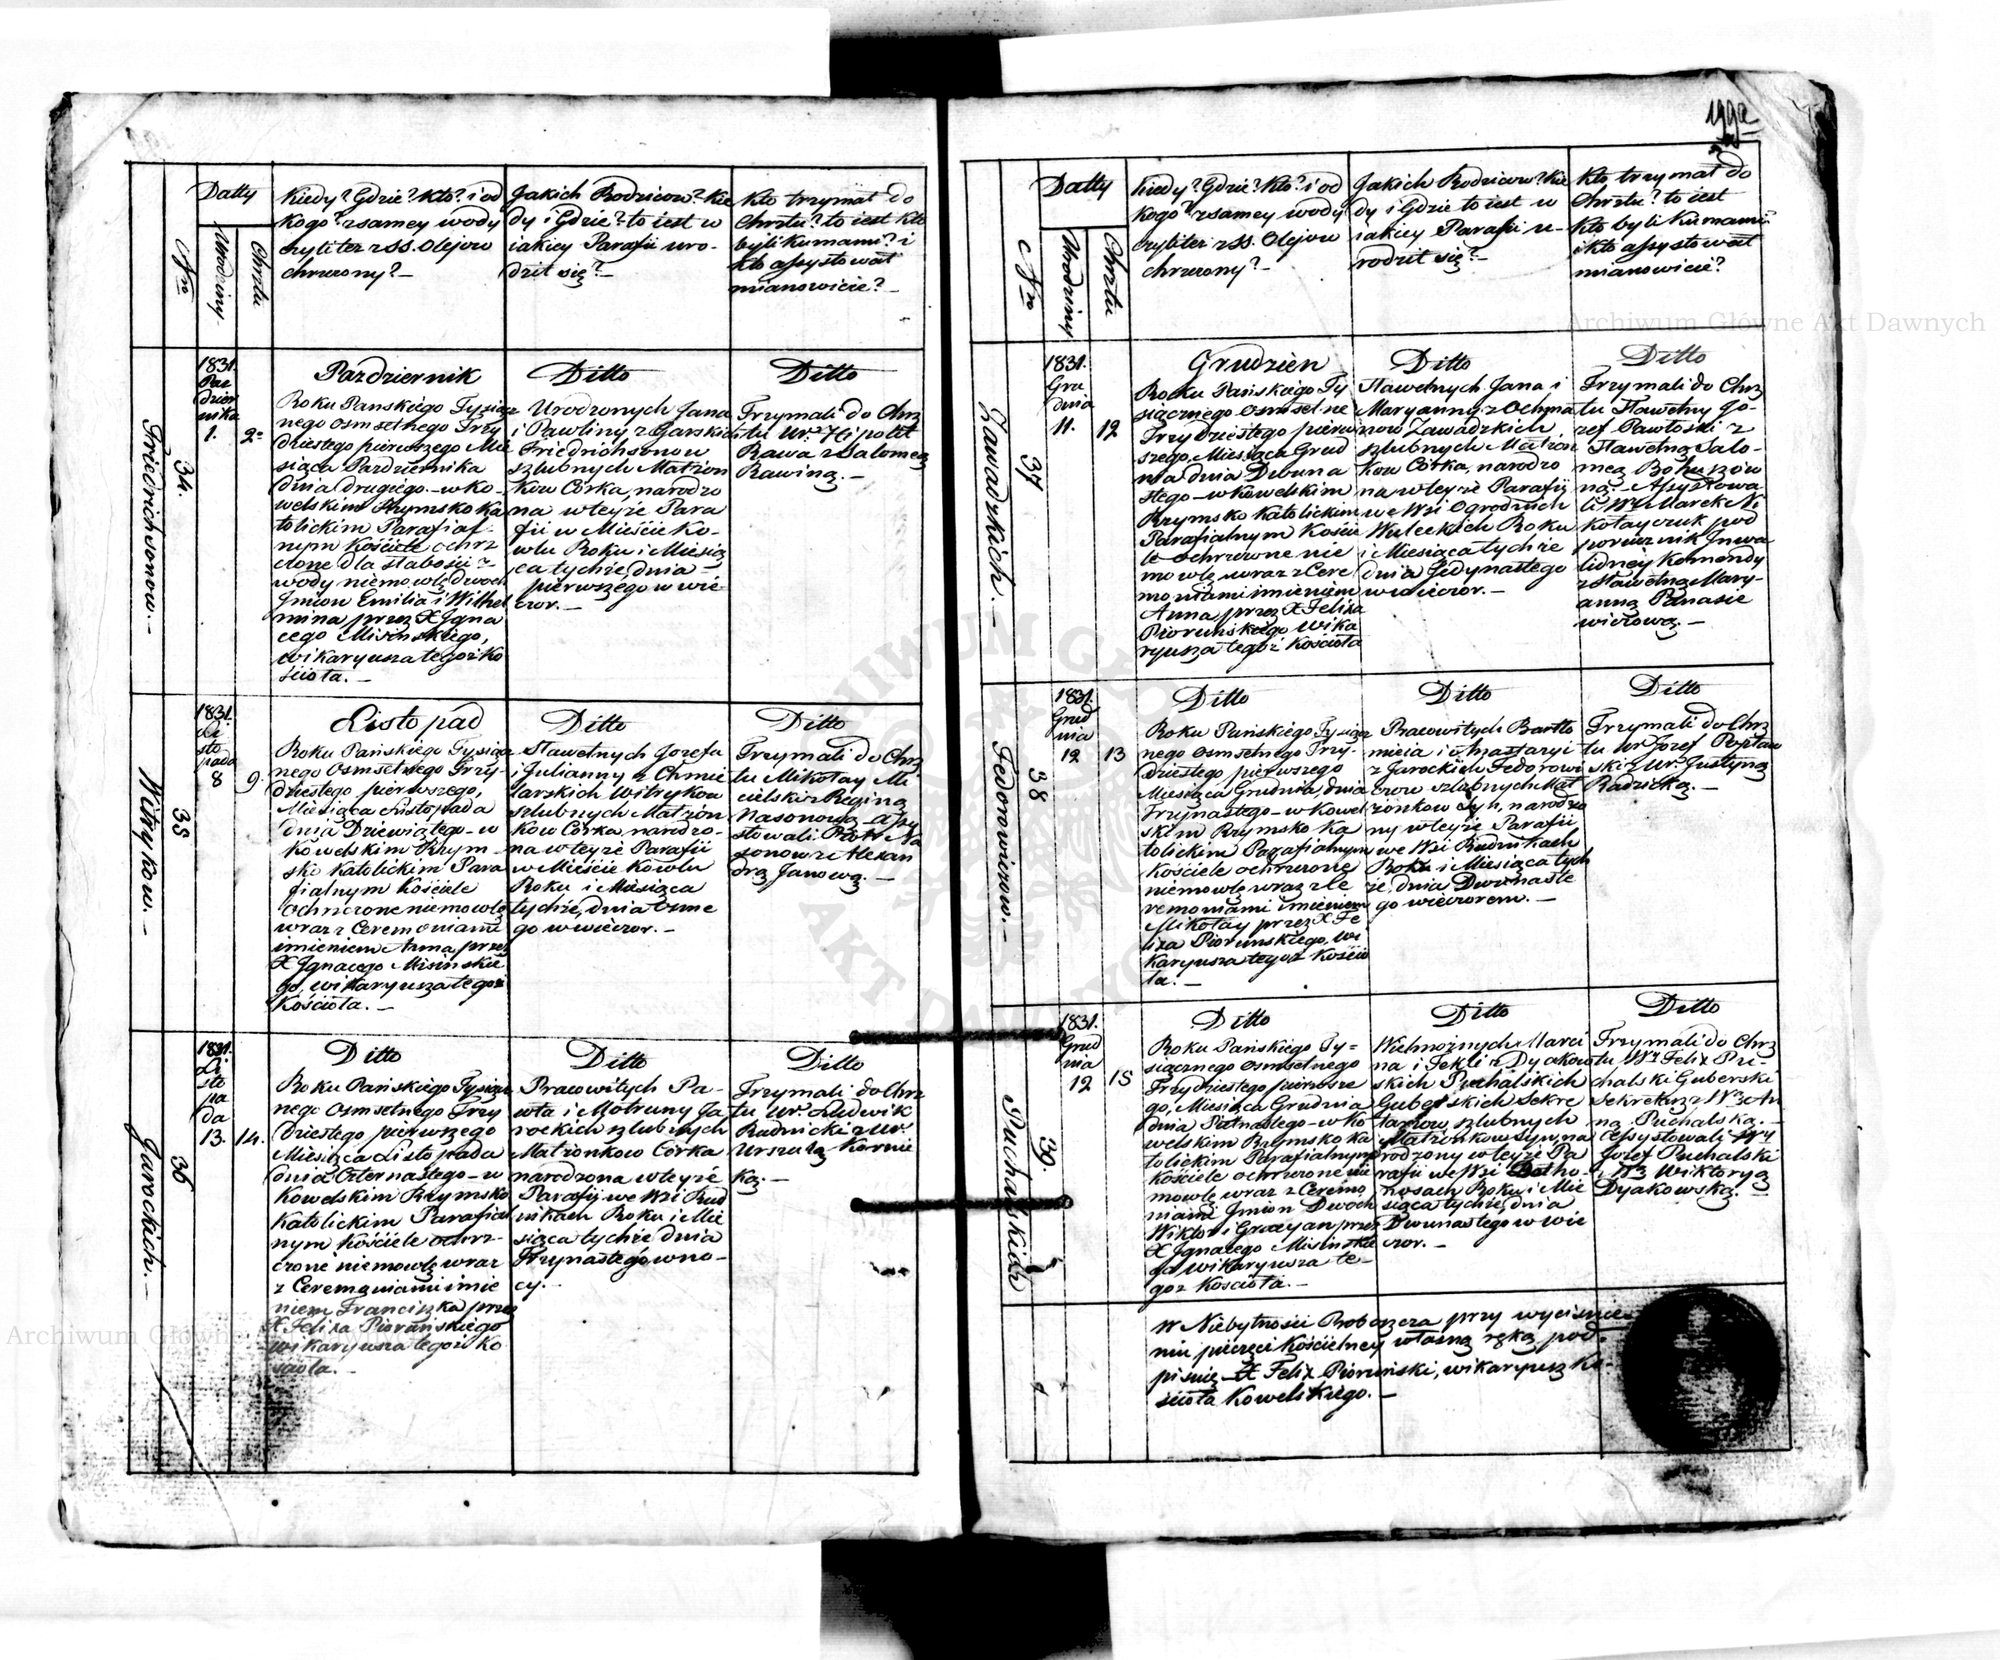 199a
Datty
Nro
Urodziny
Chrztu
Kiedy? Gdzie? Kto? i od
Kogo? z samey wody
czyli też z SS. Olejow
chrzczony? –
Jakich Rodzicow? Kie
dy i Gdzie? to iest w
iakiey Parafii uro-
dził się? –
Kto trzymał do
Chrztu? to iest kto
byli Kumami? i
kto assystował
mianowicie? –
Friedrichsonow. –
34.
1831.
Paz
dzier
nika
1.
2
Pazdziernik
Roku Panskiego Tysiącz
nego osmsetnego Trzy
dziestego pierwszego Mie
siąca Pazdziernika
dnia drugiego – w Ko-
welskim Rzymsko Ka
tolickim Parafial-
nym Kościele ochrz
czone dla słabości z
wody niemowlę dwoch
Jmion Emilia i Wilhel
mina przez X Jgna
cego Misinskiego,
wikaryusza tegoż Ko
ścioła. –
Ditto
Urodzonych Jana
i Pawliny z Garskich
Friedrichsonow
szlubnych Małżon
kow Córka, narodzo
na w teyże Para
fii w Mieście Ko-
wlu Roku i Miesią
ca tychże, dnia –
pierwszego w wie
czor. –
Ditto
Trzymali do Chrz
tu Ur. Hipolit
Rawa z Salomeą
Rawiną. –
Witrykow. –
35
1831.
Li
sto
pada
8
9.
Listopad
Roku Pańskiego Tysiącz
nego Osmsetnego Trzy-
dziestego pierwszego,
Miesiąca Listopada
dnia Dziewiątego – w
Kowelskim Rzym-
sko Katolickim Para
fialnym Kościele
ochrzczone niemowlę
wraz z Ceremoniami
imieniem Anna, przez
X Jgnacego Misinskie
go, wikaryusza tegoż
Kościoła. –
Ditto
Sławetnych Jozefa
i Julianny z Chmie
larskich Witrykow
szlubnych Małżon
kow Córka, narodzo-
na w teyże Parafii
w Mieście Kowlu
Roku i Miesiąca
tychże, dnia osme
go w wieczor. –
Ditto
Trzymali do Chrz
tu Mikołay Mi
cielski z Reginą
Nasonową assy
stowali Piotr Na
sonow z Alexan
drą Janową. –
Jarockich. –
36
1831.
Li
sto
pa
da
13.
14.
Ditto
Roku Pańskiego Tysiącz
nego Osmsetnego Trzy
dziestego pierwszego
Miesiąca Listopada
dnia Czternastego – w
Kowelskim Rzymsko
Katolickim Parafial
nym Kościele ochrz-
czone niemowlę wraz
z Ceremoniami imie
niem Franciszka przez
X Felixa Piorunskiego
wikaryusza tegoż Ko
scioła. –
Ditto
Pracowitych Pa-
wła i Motruny Ja
rockich szlubnych
Małżonkow Córka
narodzona w teyże
Parafii we Wsi Rud
nikach Roku i Mie
siąca tychże dnia
Trzynastego w no-
cy. –
Ditto
Trzymali do Chrz
tu Ur. Ludwik
Rudnicki z Ur.
Urszulą Kornic
Ką. –
Datty
Nro
Urodziny
Chrztu
Kiedy? Gdzie? Kto? i od
Kogo? z samey wody
czyli też z SS. Olejow
chrzczony? –
Jakich Rodzicow? Kie
dy i Gdzie to iest w
iakiey Parafii u-
rodził się? –
Kto trzymał do
Chrztu? to iest
kto byli Kumami?
i kto assystował
mianowicie?
Zawadzkich. –
37
1831.
Gru
dnia
11.
12
Grudzien
Rocku Pańskiego Ty
siącznego osmsetne
Trzydziestego pierw
szego, Miesiąca Grud
nia dnia Dwuna
stego – w Kowelskim
Rzymsko Katolickim
Parafialnym Kości
le ochrzczone nie
mowlę wraz z Cere
moniami imieniem
Anna przez X Felixa
Piorunskiego Wika
ryusza tegoż Kościoła
Ditto
Sławetnych Jana i
Maryanny z Ochma
now Zawadzkich
szlubnych Małżon
kow Córka, narodzo
na w teyże Parafii
we Wsi Ogrodnich
Wuleckich Roku
i Miesiąca tychże
dnia Jedynastego
w wieczor. –
Ditto
Trzymali do Chrz
tu Sławetny Jo-
zef Pawłoski z
Sławetną Salo-
meą Bohuszow
ną. – Assystowa
li Wr Marek Ni
kołayczuk pod
porucznik Jnwa
lidney Komendy
z Sławetną Mary-
anną Panasie
wiczową. –
Fedorowiczow. –
38
1831.
Grud
nia
12
13
Ditto
Roku Pańskiego Tysiącz
nego osmsetnego Trzy-
dziestego pierwszego
Miesiąca Grudnia dnia
Trzynastego – w Kowel
skim Rzymsko Ka
tolickim Parafialnym
Kościele ochrzczone
niemowlę wraz z Ce
remoniami imieniem
Mikołay przez X Fe
lixa Piorunskiego, wi
karyusza tegoż Kościo
ła. –
Ditto
Pracowitych Bartło
mieia i Anastazyi
z Jarockich Fedorowi
czow szlubnych Mał
żonkow Syn, narodzo
ny w teyże Parafii
we Wsi Rudnikach
Roku i Miesiąca tych
że, dnia Dwunaste
go wieczorem. –
Ditto
Trzymali do Chrz
tu Ur Jozef Popław
ski z Ur. Justyną
Radzicką. –
Puchalskich
39.
1831.
Grud
nia
12
15
Ditto
Roku Pańskiego Ty-
siącznego osmsetnego
Trzydziestego pierwsze
go, Miesiąca Grudnia
dnia Piętnastego – w Ko
welskim Rzymsko Ka
tolickim Parafialnym
Kościele ochrzczone nie
mowlę wraz z Ceremo
niami Jmion Dwoch
Wiktor i Gracyan przez
X Jgnacego Misinskie
go wikaryusza te-
goż Kościoła. –
Ditto
Wielmożnych Marci
na i Tekli z Dyakow
skich Puchalskich
Guberskich Sekre
tarzow szlubnych
Małżonkow Syn, na
rodzony w teyże Pa
rafii we Wsi Dołho-
nosach Roku i Mie
siąca tychże, dnia
Dwunastego w wie
czor. –
Ditto
Trzymali do Chrz
tu Wr Felix Pu-
chalski Guberski
Sekretarz z Wną An
ną Puchalską. –
Assystowali Wny
Jozef Puchalski
z Wną Wiktoryą
Dyakowską. –
W Niebytności Proboszcza przy wyciśnie-
niu pieczęci Kościelney własną ręką pod-
pisuię – X Felix Piorunski, wikaryusz Ko-
ścioła Kowelskiego. –
Archiwum Główne Akt Dawnych
Archiwum Główne Akt Dawnych
ARCHIWUM GŁÓWNE
AKT DAWNYCH